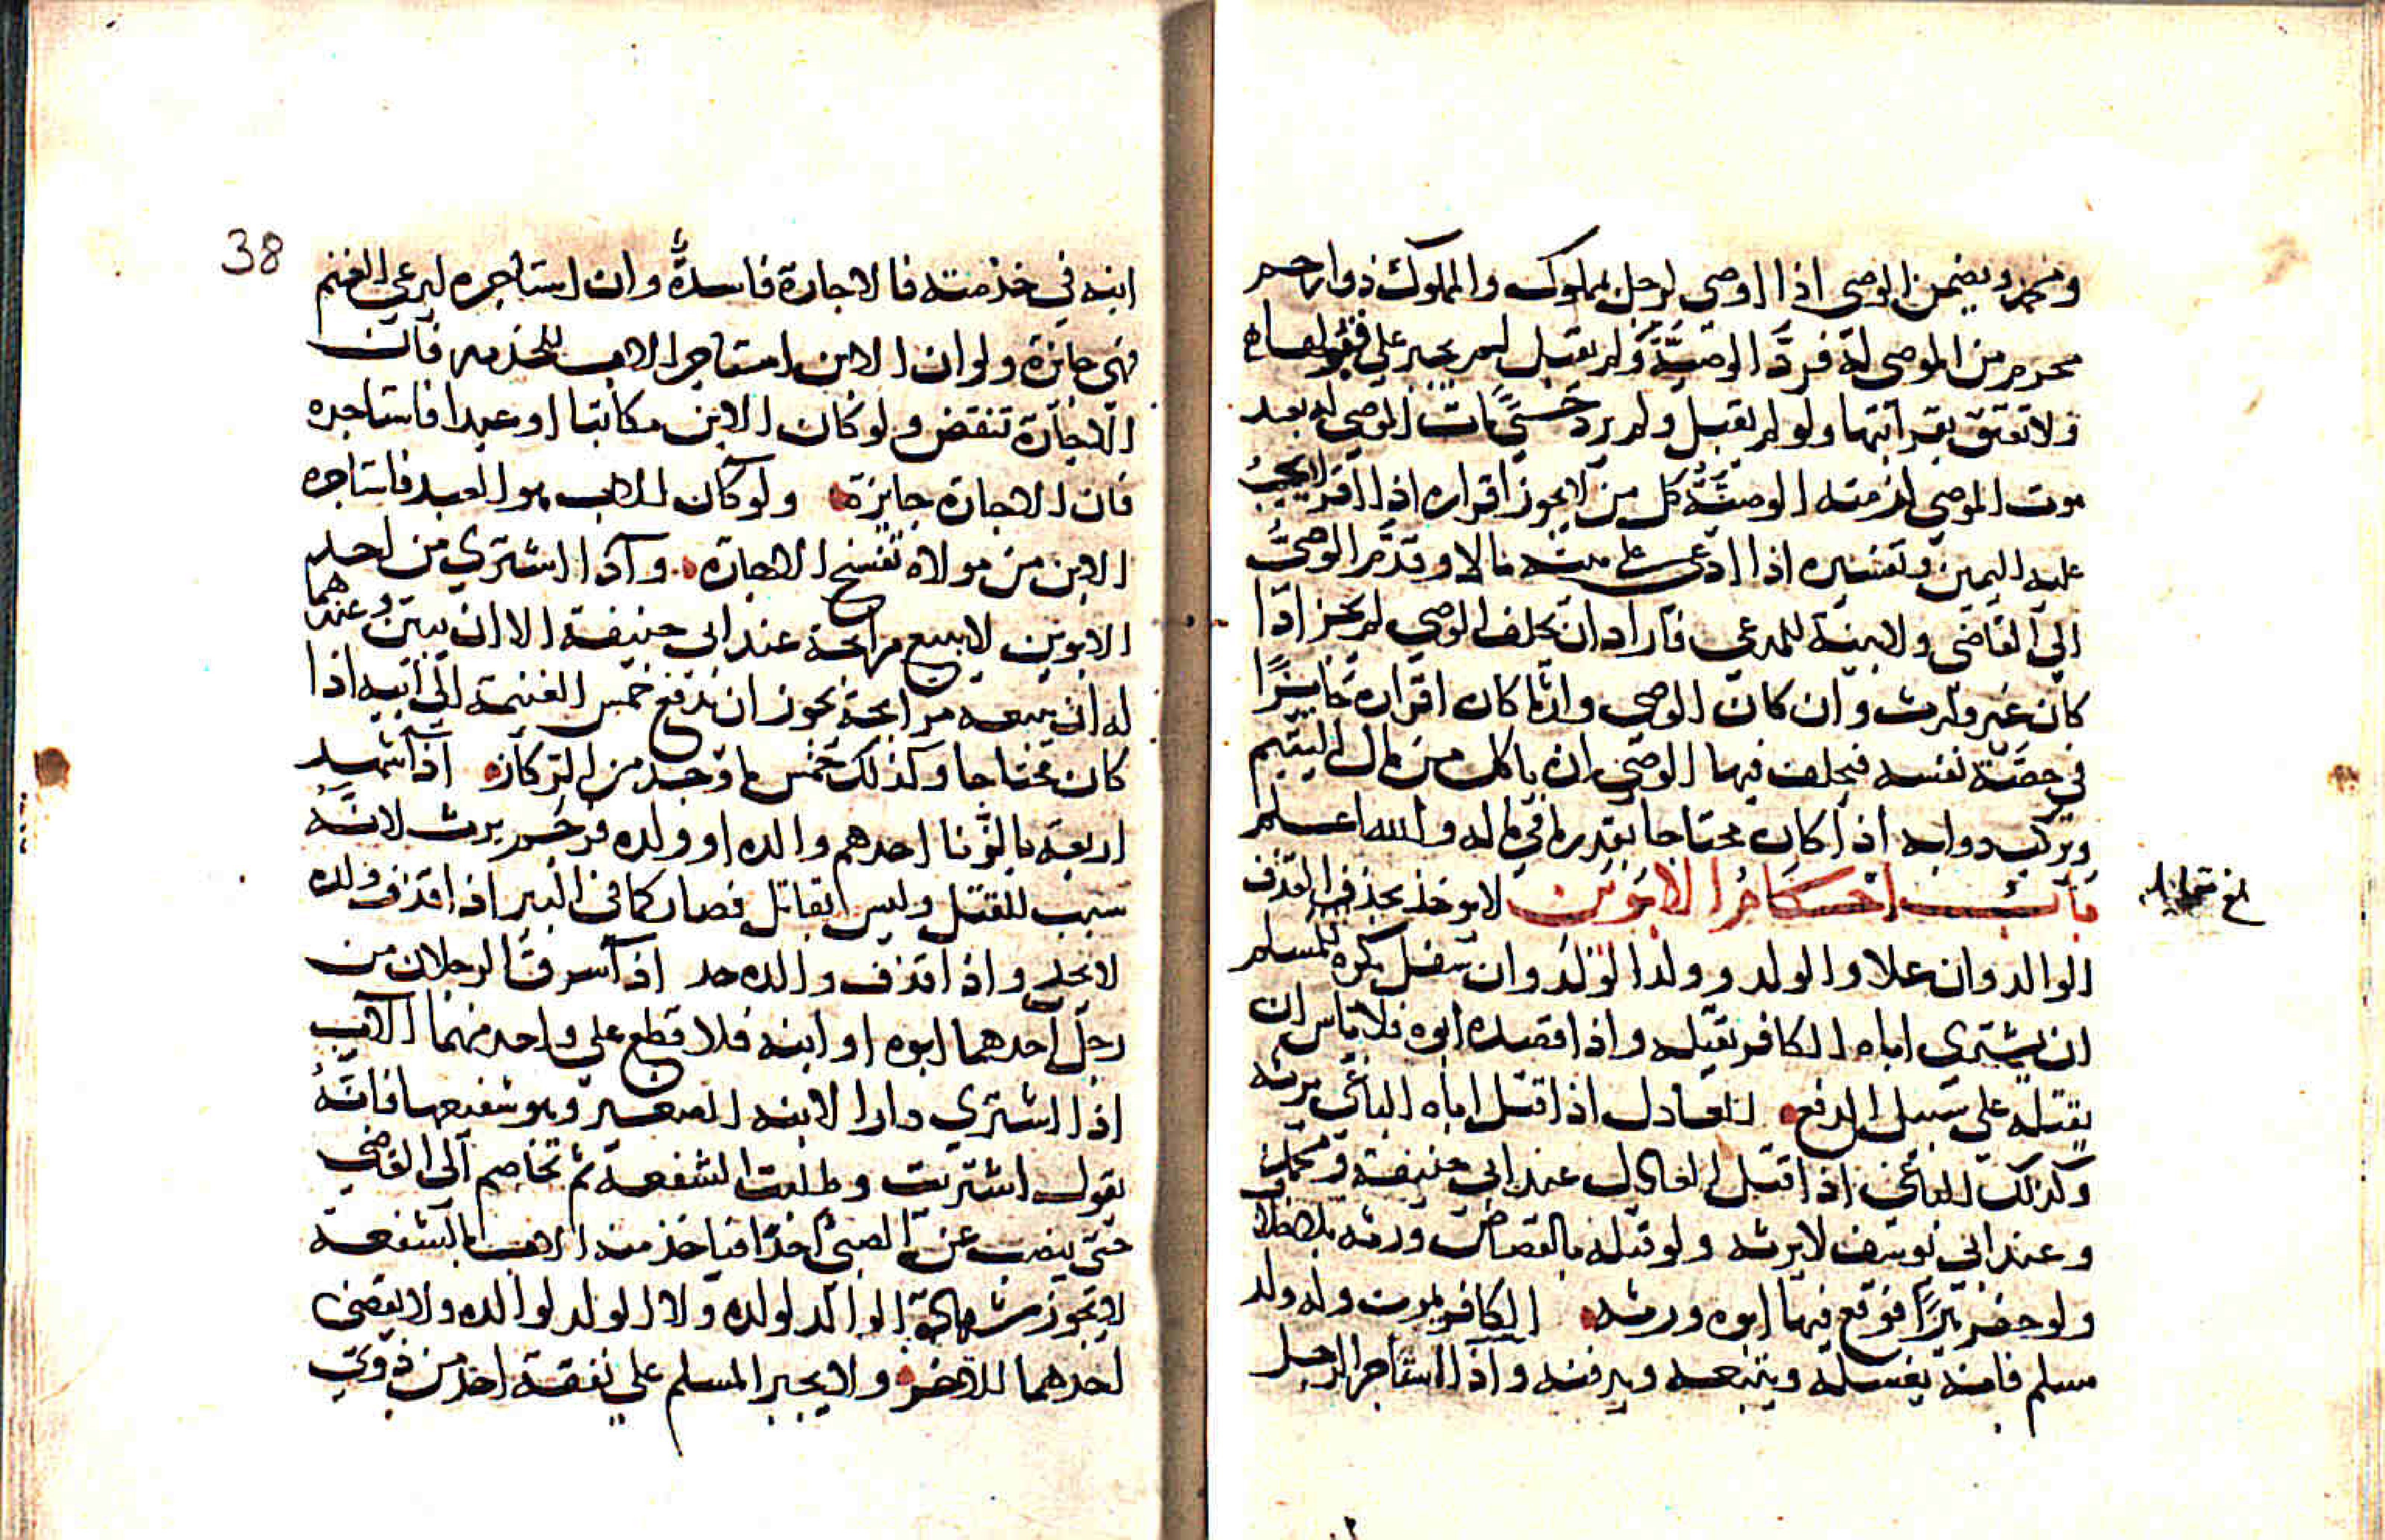 ومحمد ويضمن الوصي اذا اوصى لرجل بمملوك والمملوك ذوا رحم
محرم من الموصى له فردّ الوصيّة ولم يقبل لم يجبر على قبولها
ولا تعتق بقرابتها ولو لم يقبل ولم يرد حتّى مات الموصى له بعد
موت الموصي لزمته الوصيّة كل من لا يجوز اقراره اذا اقر لا يجب
عليه اليمين وتفسيره اذا ادعى على ميت مالا وقدّم الوصيّ
الى القاضي ولا بينة للمدعي فاراد ان يحلف الوصي لم يجز اذا
كان غير وارث وان كان الوصي وارثا كان اقراره جايزًا
في حصّة نفسه فيحلف فيها الوصي ان ياكل من مال اليتيم
ويركب دوابه اذا كان محتاجا بقدر ما في ماله والله اعلم
باب احكام الابوين لا يوخذ بحد في القذف
الوالد وان علا والولد وولد الولد وان سفل يكره للمسلم
ان يشترى اباه الكافر يقتله واذا قصده ابوه فلا باس ان
يقتله على سبيل الدفع العادل اذا قتل اباه الباغي يرثه
وكذلك الباغي اذا قتل العادل عند ابي حنيفة ومحمد
وعند ابي يوسف لا يرثه ولو قتله بالقصاص ورثه بلا خلاف
ولو حفر بيرًا فوقع فيها ابوه ورثه الكافر يموت وله ولد
مسلم فانه يغسله ويتبعه ويدفنه واذا استاجر الرجل
38
ابنه في خدمته فالاجارة فاسدة وان استاجره ليرعى الغنم
فهي جايزة ولو ان الابن استاجر الاب للخدمه فان
الاجارة تنقض ولو كان الابن مكاتبا او عبدا فاستاجره
فان الاجارة جايزة ولو كان الاب هو العبد فاستاجره
الابن من مولاه تفسخ الاجارة واذا اشترى من احد
الابوين لا يبيع مرابحة عند ابي حنيفة الا ان يبين وعندهما
له ان يبيعه مرابحة يجوز ان يدفع خمس الغنيمة الى ابيه اذا
كان محتاجا وكذلك خمس ما وجد من الركاز اذا شهد
اربعة بالزنا احدهم والده او ولده فرجم يرث لانه
سبب للقتل وليس بقاتل فصار كما في البير اذا قذف ولده
لا يحد واذا قذف والده حد اذا سرق الرجلان من
رجل احدهما ابوه او ابنه فلا قطع على واحد منهما الاب
اذا اشترى دارا لابنه الصغير وهو شفيعها فانه
يقول اشتريت وطلبت الشفعة ثم تخاصم الى القاضي
حتى ينصب عن الصبي احدًا فياخذ منه الاب بالشفعة
لا تجوز شهادة الوالد لولده ولا الولد لوالده ولا يقضى
احدهما للاخر ولا يجبر المسلم على نفقة احد من ذوي